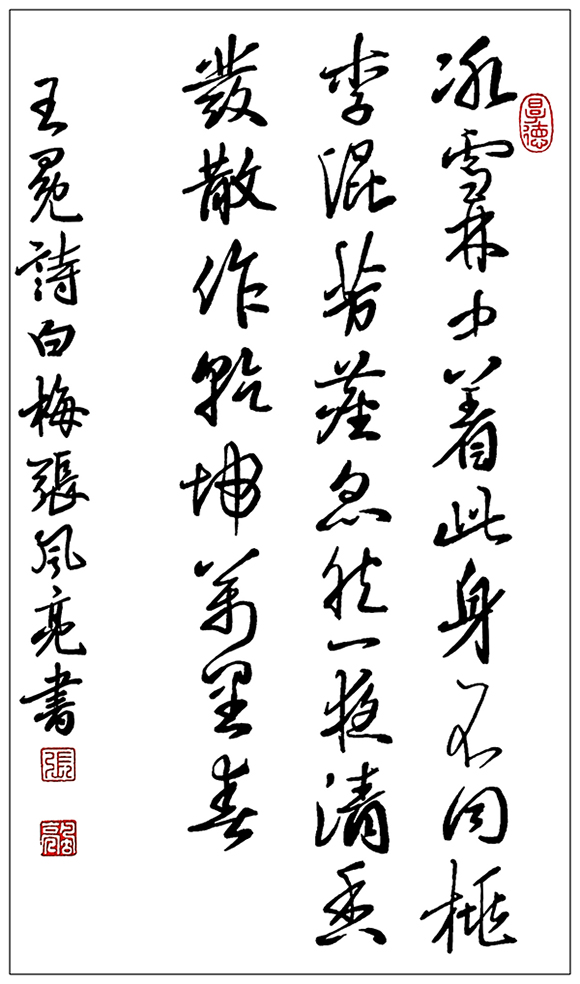 冰雪林中着此身不同桃
李混芳塵忽然一夜清香
發散作乾坤萬里春
王冕詩白梅張風亮書
張